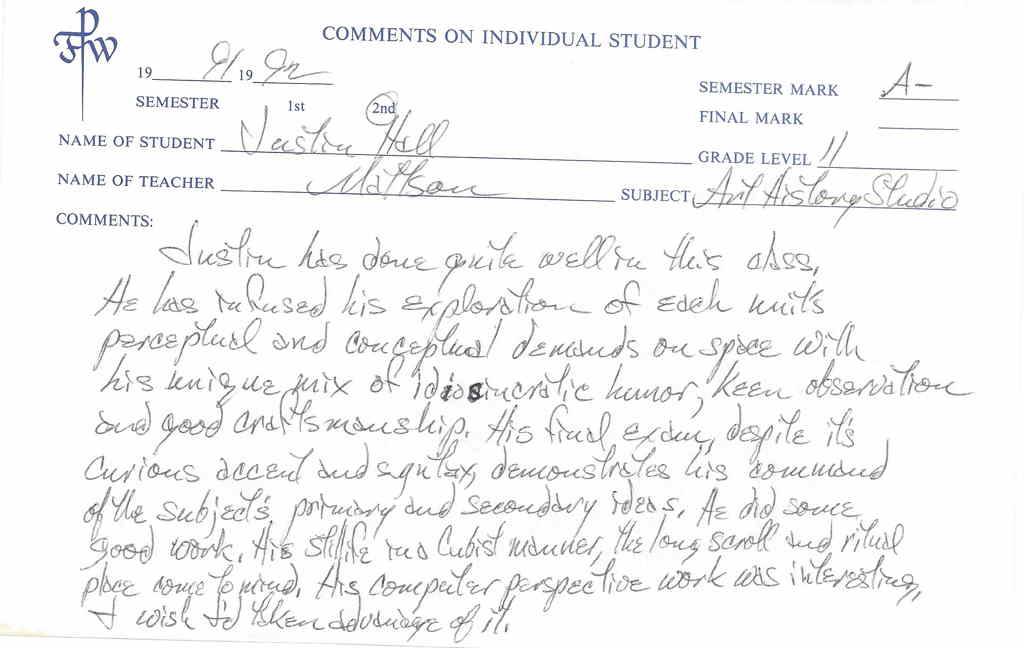 FPW
COMMENTS ON INDIVIDUAL STUDENT
19 91 19 92
SEMESTER MARK A-
SEMESTER 1st 2nd
FINAL MARK
NAME OF STUDENT Justin Hall
GRADE LEVEL 11
NAME OF TEACHER Mattson
SUBJECT Art History Studio
COMMENTS:
Justin has done quite well in this class.
He has infused his exploration of each unit's
perceptual and conceptual demands on space with
his unique mix of idiosincratic humor, keen observation
and good craftsmanship. His final exam, despite it's
curious accent and syntax, demonstrates his command
of the subject's primary and secondary ideas. He did some
good work. His stillife in a Cubist manner, the long scroll and ritual
place come to mind. His computer perspective work was interesting,
I wish I'd taken advantage of it.